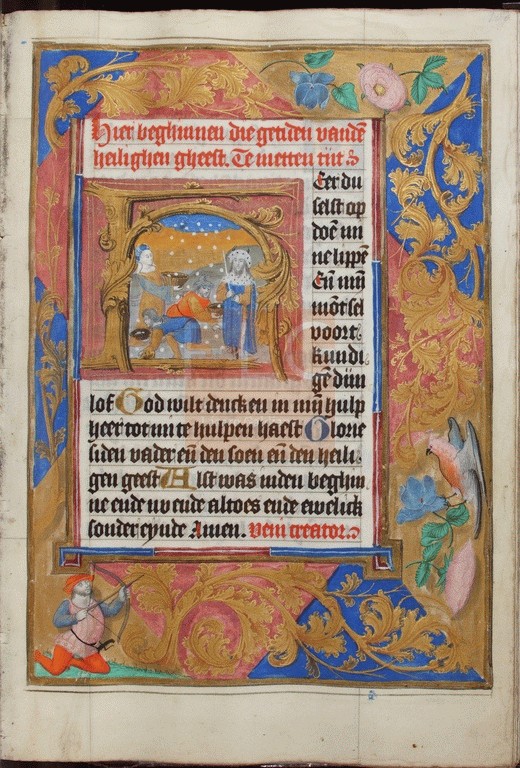 Hier beghinnen die getiden vandē
heilighen gheest. Te metten tijt
Heer du
selst op
doē mi
ne lippē
Eñ mijn
mōt sel
voort
kundi
gē dijn
lof God wilt dencken in mijn hulp
heer tot mi te hulpen haest Glorie
si den vader eñ den soen eñ den heili
gen geest Alst was inden beghin
ne ende nv ende altoes ende ewelick
sonder eynde Amen. veni creator